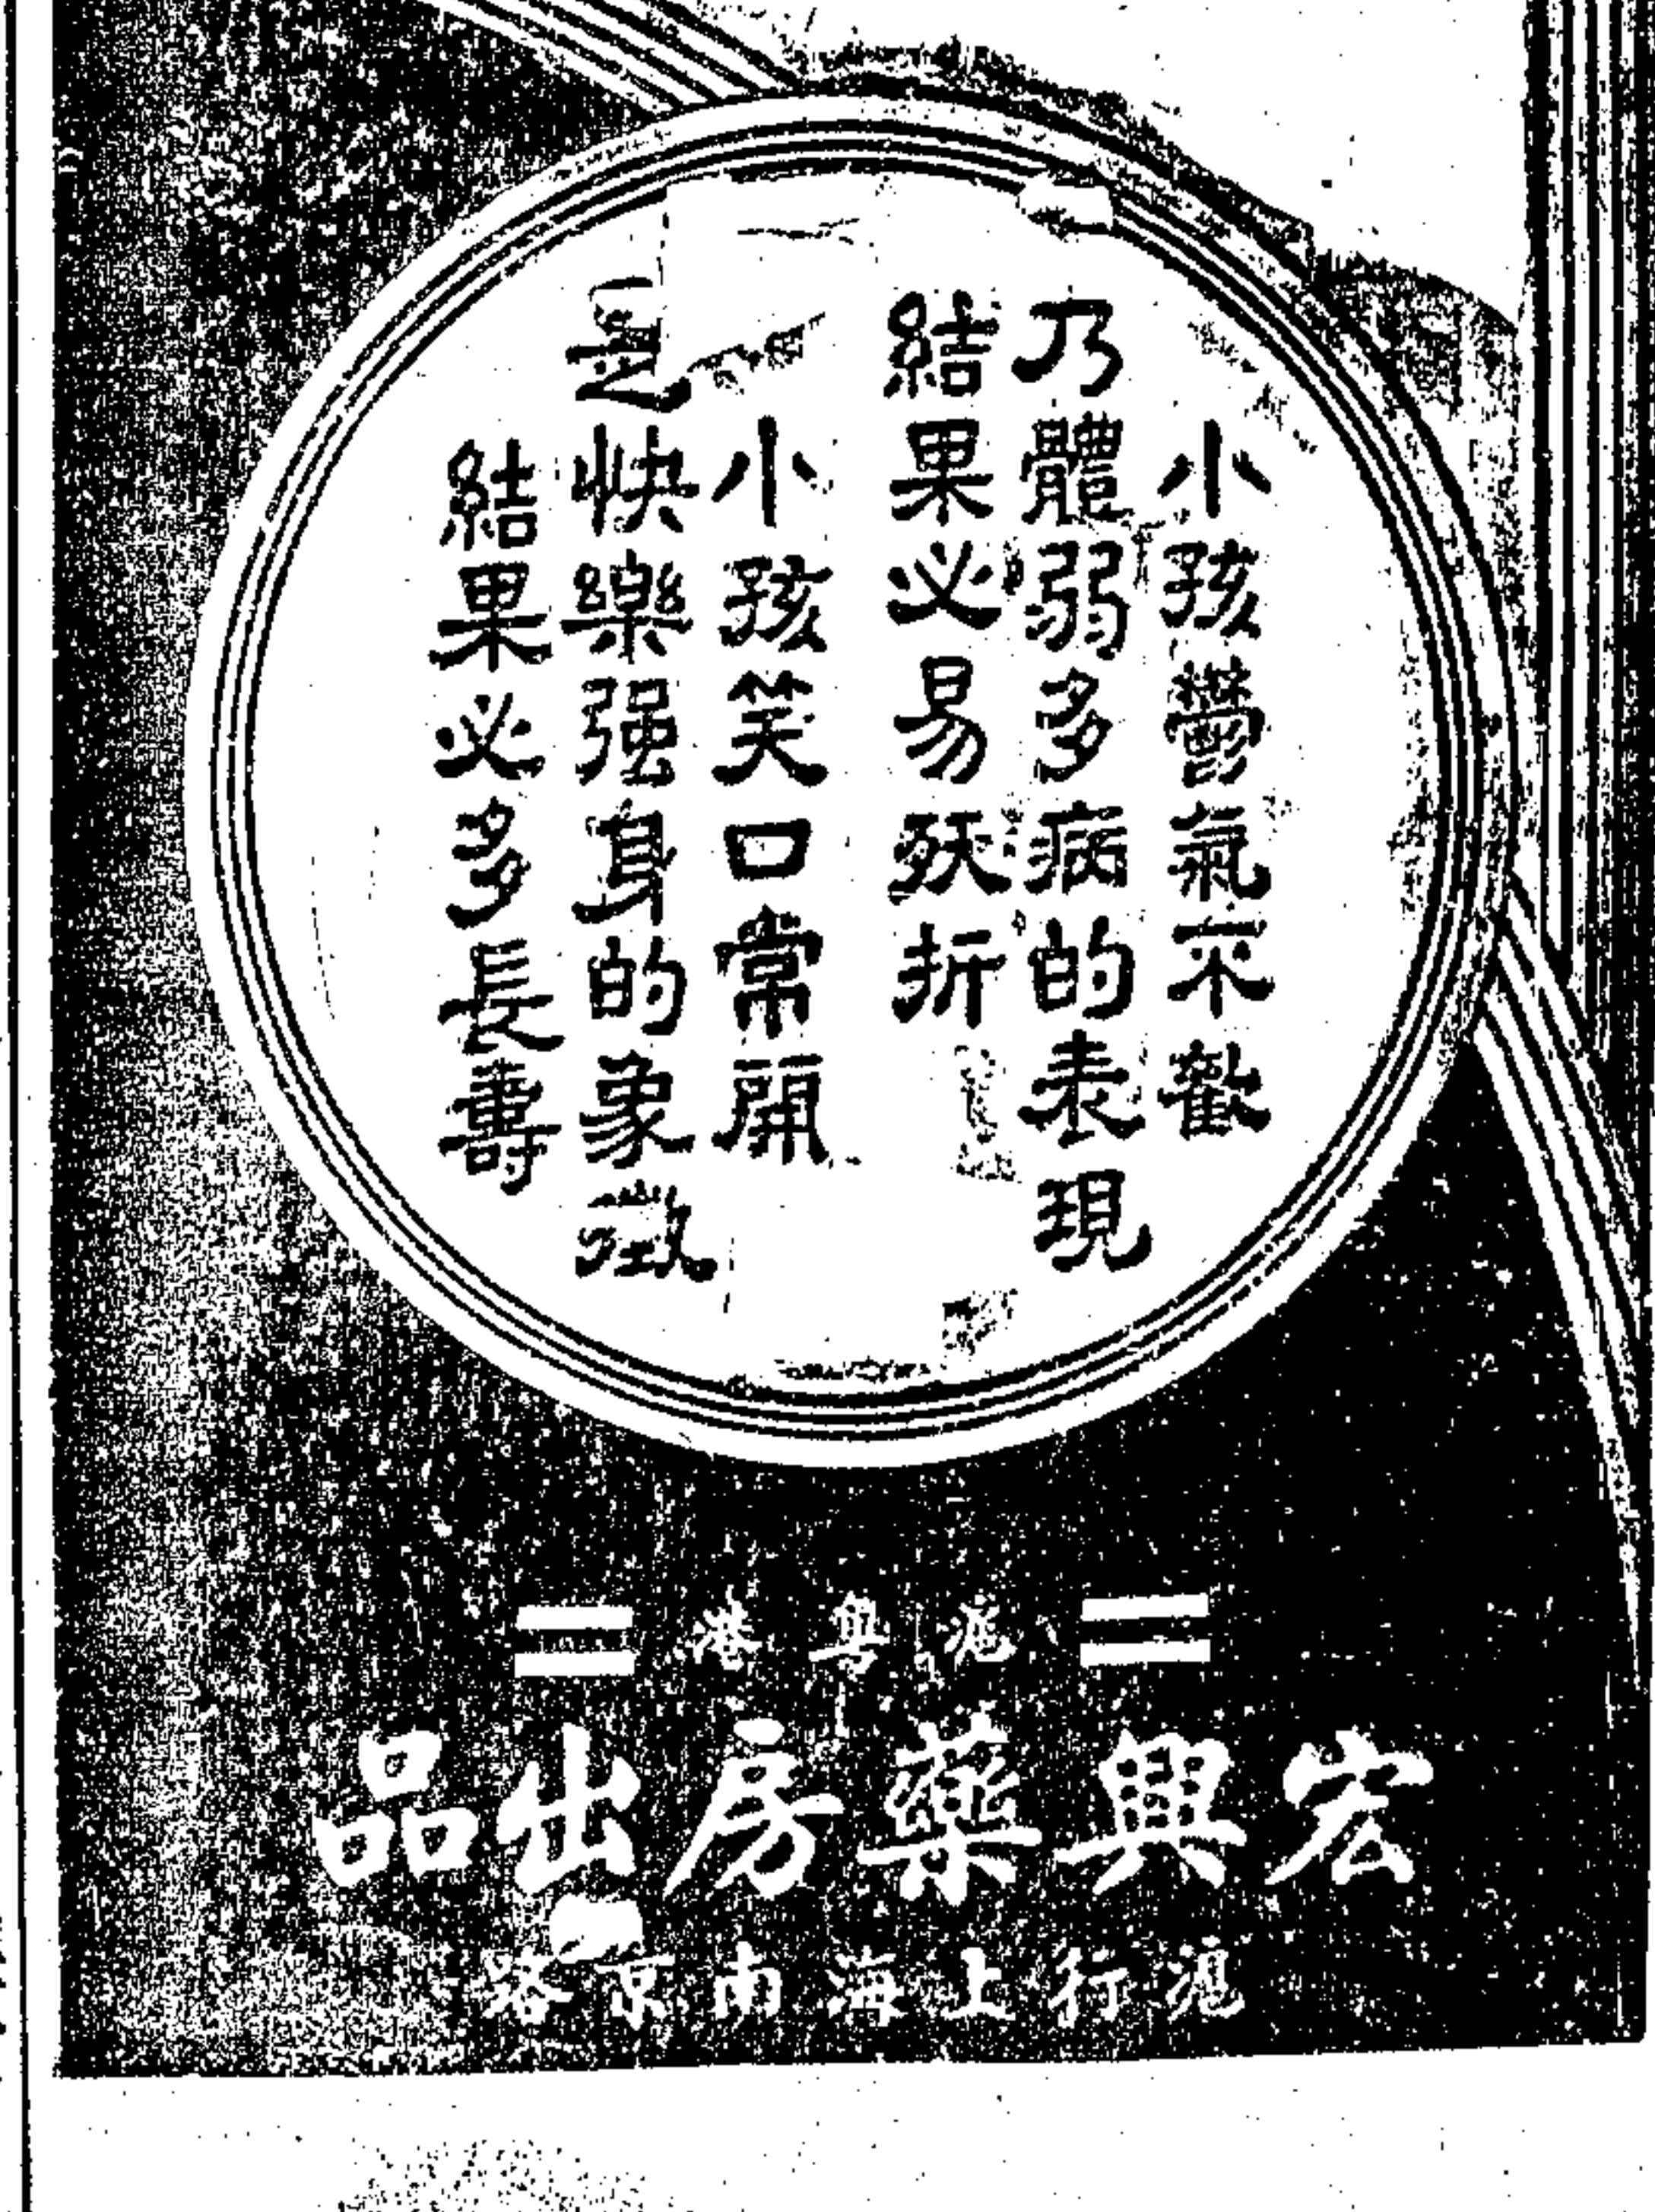 小孩鬱氣不歡
乃體弱多病的表現
結果必易殀折
小孩笑口常開
是快樂强身的象徵
結果必多長壽
滬粤港
宏興藥房出品
滬行上海南京路